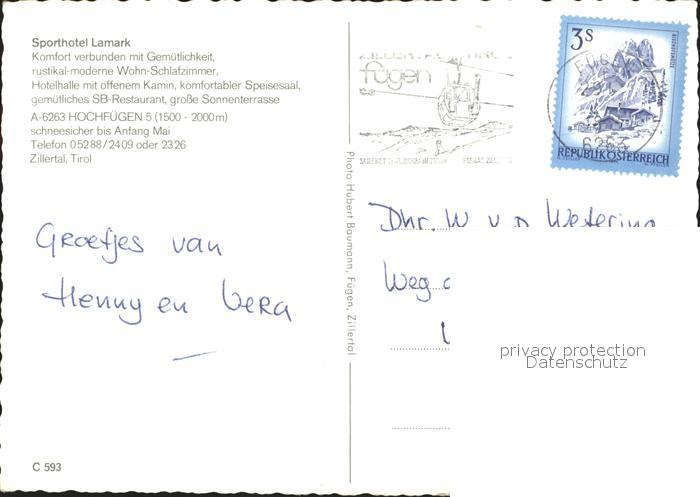 Sporthotel Lamark
Komfort verbunden mit Gemütlichkeit,
rustikal-moderne Wohn-Schlafzimmer,
Hotelhalle mit offenem Kamin, komfortabler Speisesaal,
gemütliches SB-Restaurant, große Sonnenterrasse
A-6263 HOCHFÜGEN 5 (1500 - 2000 m)
schneesicher bis Anfang Mai
Telefon 05288/2409 oder 2326
Zillertal, Tirol
Groetjes van
Henny en Vera
C 593
Photo Hubert Baumann, Fügen, Zillertal
fügen
3 S
6263
REPUBLIK ÖSTERREICH
Dhr. W v.d. Wetering
Weg
privacy protection
Datenschutz